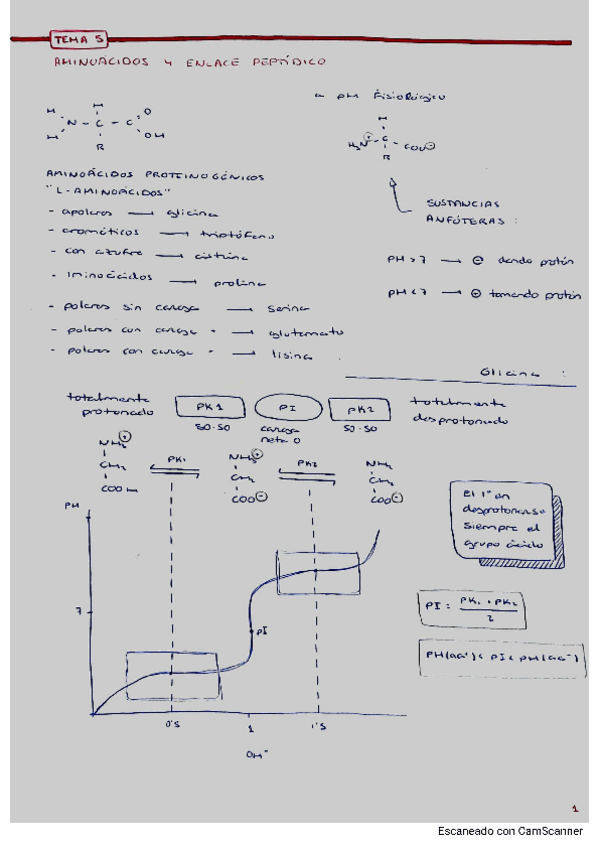 TEMA 5
AMINOÁCIDOS Y ENLACE PEPTÍDICO
a pH fisiológico
H H O
N - C - C
H R OH
H
H₃N⊕ - C - COO⊖
R
AMINOÁCIDOS PROTEINOGÉNICOS
"L-AMINOÁCIDOS"
- apolares → glicina
- aromáticos → triptófano
- con azufre → cistina
- Iminoácidos → prolina
- polares sin carga → serina
- polares con carga - → glutamato
- polares con carga → lisina
SUSTANCIAS
ANFÓTERAS :
PH > 7 → ⊖ dando protón
PH < 7 → tomando protón
Glicina :
totalmente
protonado
PK1
50-50
PI
carga
neta 0
PK2
50-50
totalmente
desprotonado
NH₃⊕
CH₂
COOH
PK₁
NH₃⊕
CH₂
COO⊖
PK₂
NH₂
CH₂
COO⊖
El 1º en
desprotonarse
siempre el
grupo ácido
PH
7
PI
PI = PK₁ + PK₂
2
PH(aa⁺) < PI < PH(aa⁻)
0'5
1
1'5
OH⁻
1
Escaneado con CamScanner